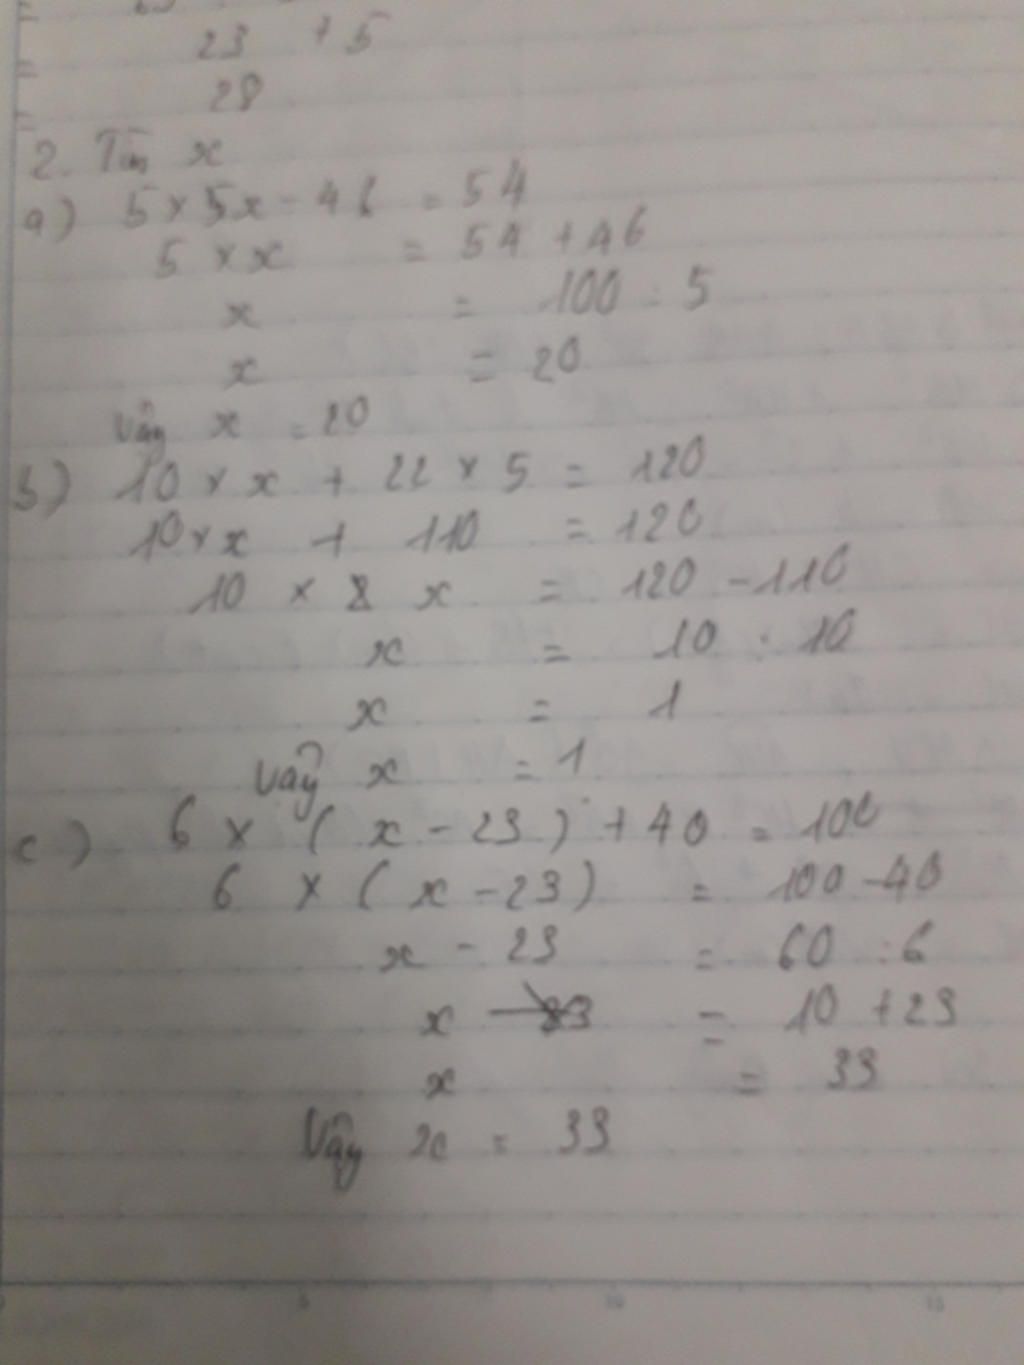 =
23 + 5
=
28
=
2. Tìm x
a) 5 × 5x - 46 = 54
5 × x = 54 + 46
x = 100 : 5
x = 20
Vậy x = 20
b) 10 × x + 22 × 5 = 120
10 × x + 110 = 120
10 × x = 120 - 110
x = 10 : 10
x = 1
Vậy x = 1
c) 6 × ( x - 23 ) + 40 = 100
6 × ( x - 23 ) = 100 - 40
x - 23 = 60 : 6
x = 10 + 23
x = 33
Vậy x = 33
5 10 15